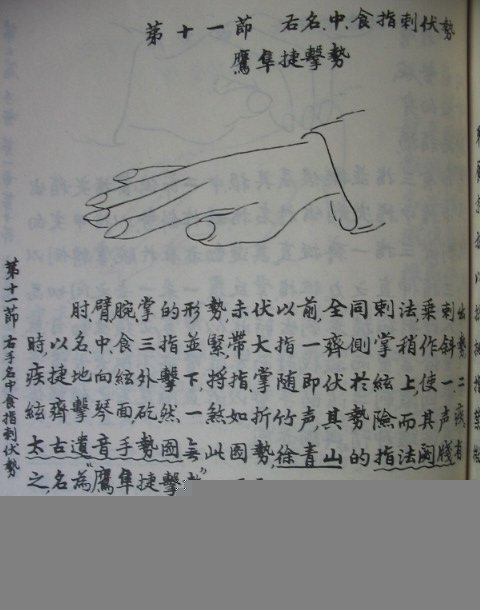 第十一節 右名、中、食指刺伏勢
鷹隼捷擊勢
肘、臂、腕、掌的形勢,未伏以前,全同刺法,乘刺出
時,以名、中、食三指並緊,帶大指一齊側掌稍作斜勢
疾捷地向絃外擊下,將指、掌隨即伏於絃上,使一二
絃齊擊琴面,矻然一煞如折竹声,其勢險而其声疾
太古遺音手勢圖無此圖勢,徐青山的指法闕牋有
之,名為"鷹隼捷擊
第十一節 右手名中食指刺伏勢